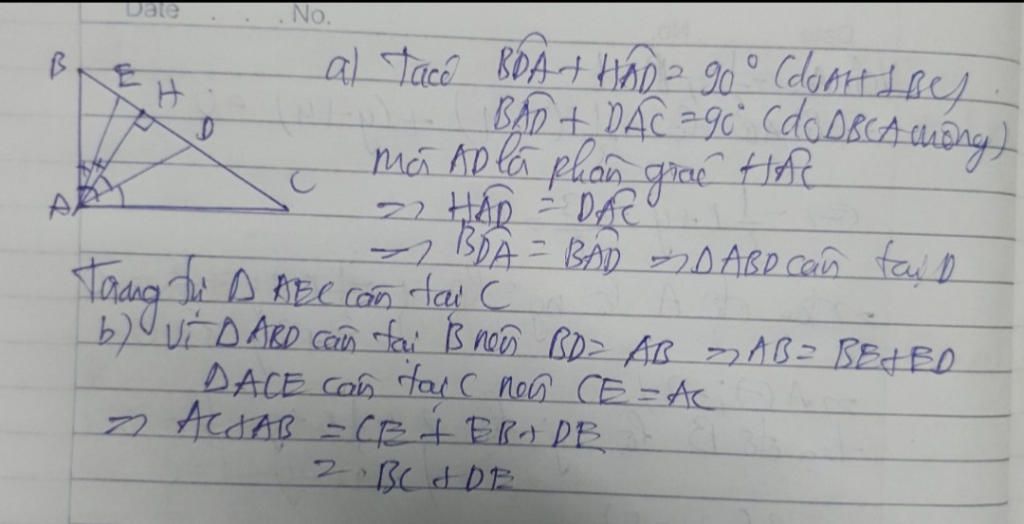 Date . . . No.
B E H D C A
a) Ta có BDA + HAD = 90° (do AH ⊥ BC)
BAD + DAC = 90° (do ΔBCA vuông)
mà AD là phân giác HAC
=> HAD = DAC
=> BDA = BAD => ΔABD cân tại D
Tương tự Δ AEC cân tại C
b) Vì ΔABD cân tại B nên BD = AB => AB = BE + ED
ΔACE cân tại C nên CE = AC
=> AC + AB = CE + EB + DE
= BC + DE